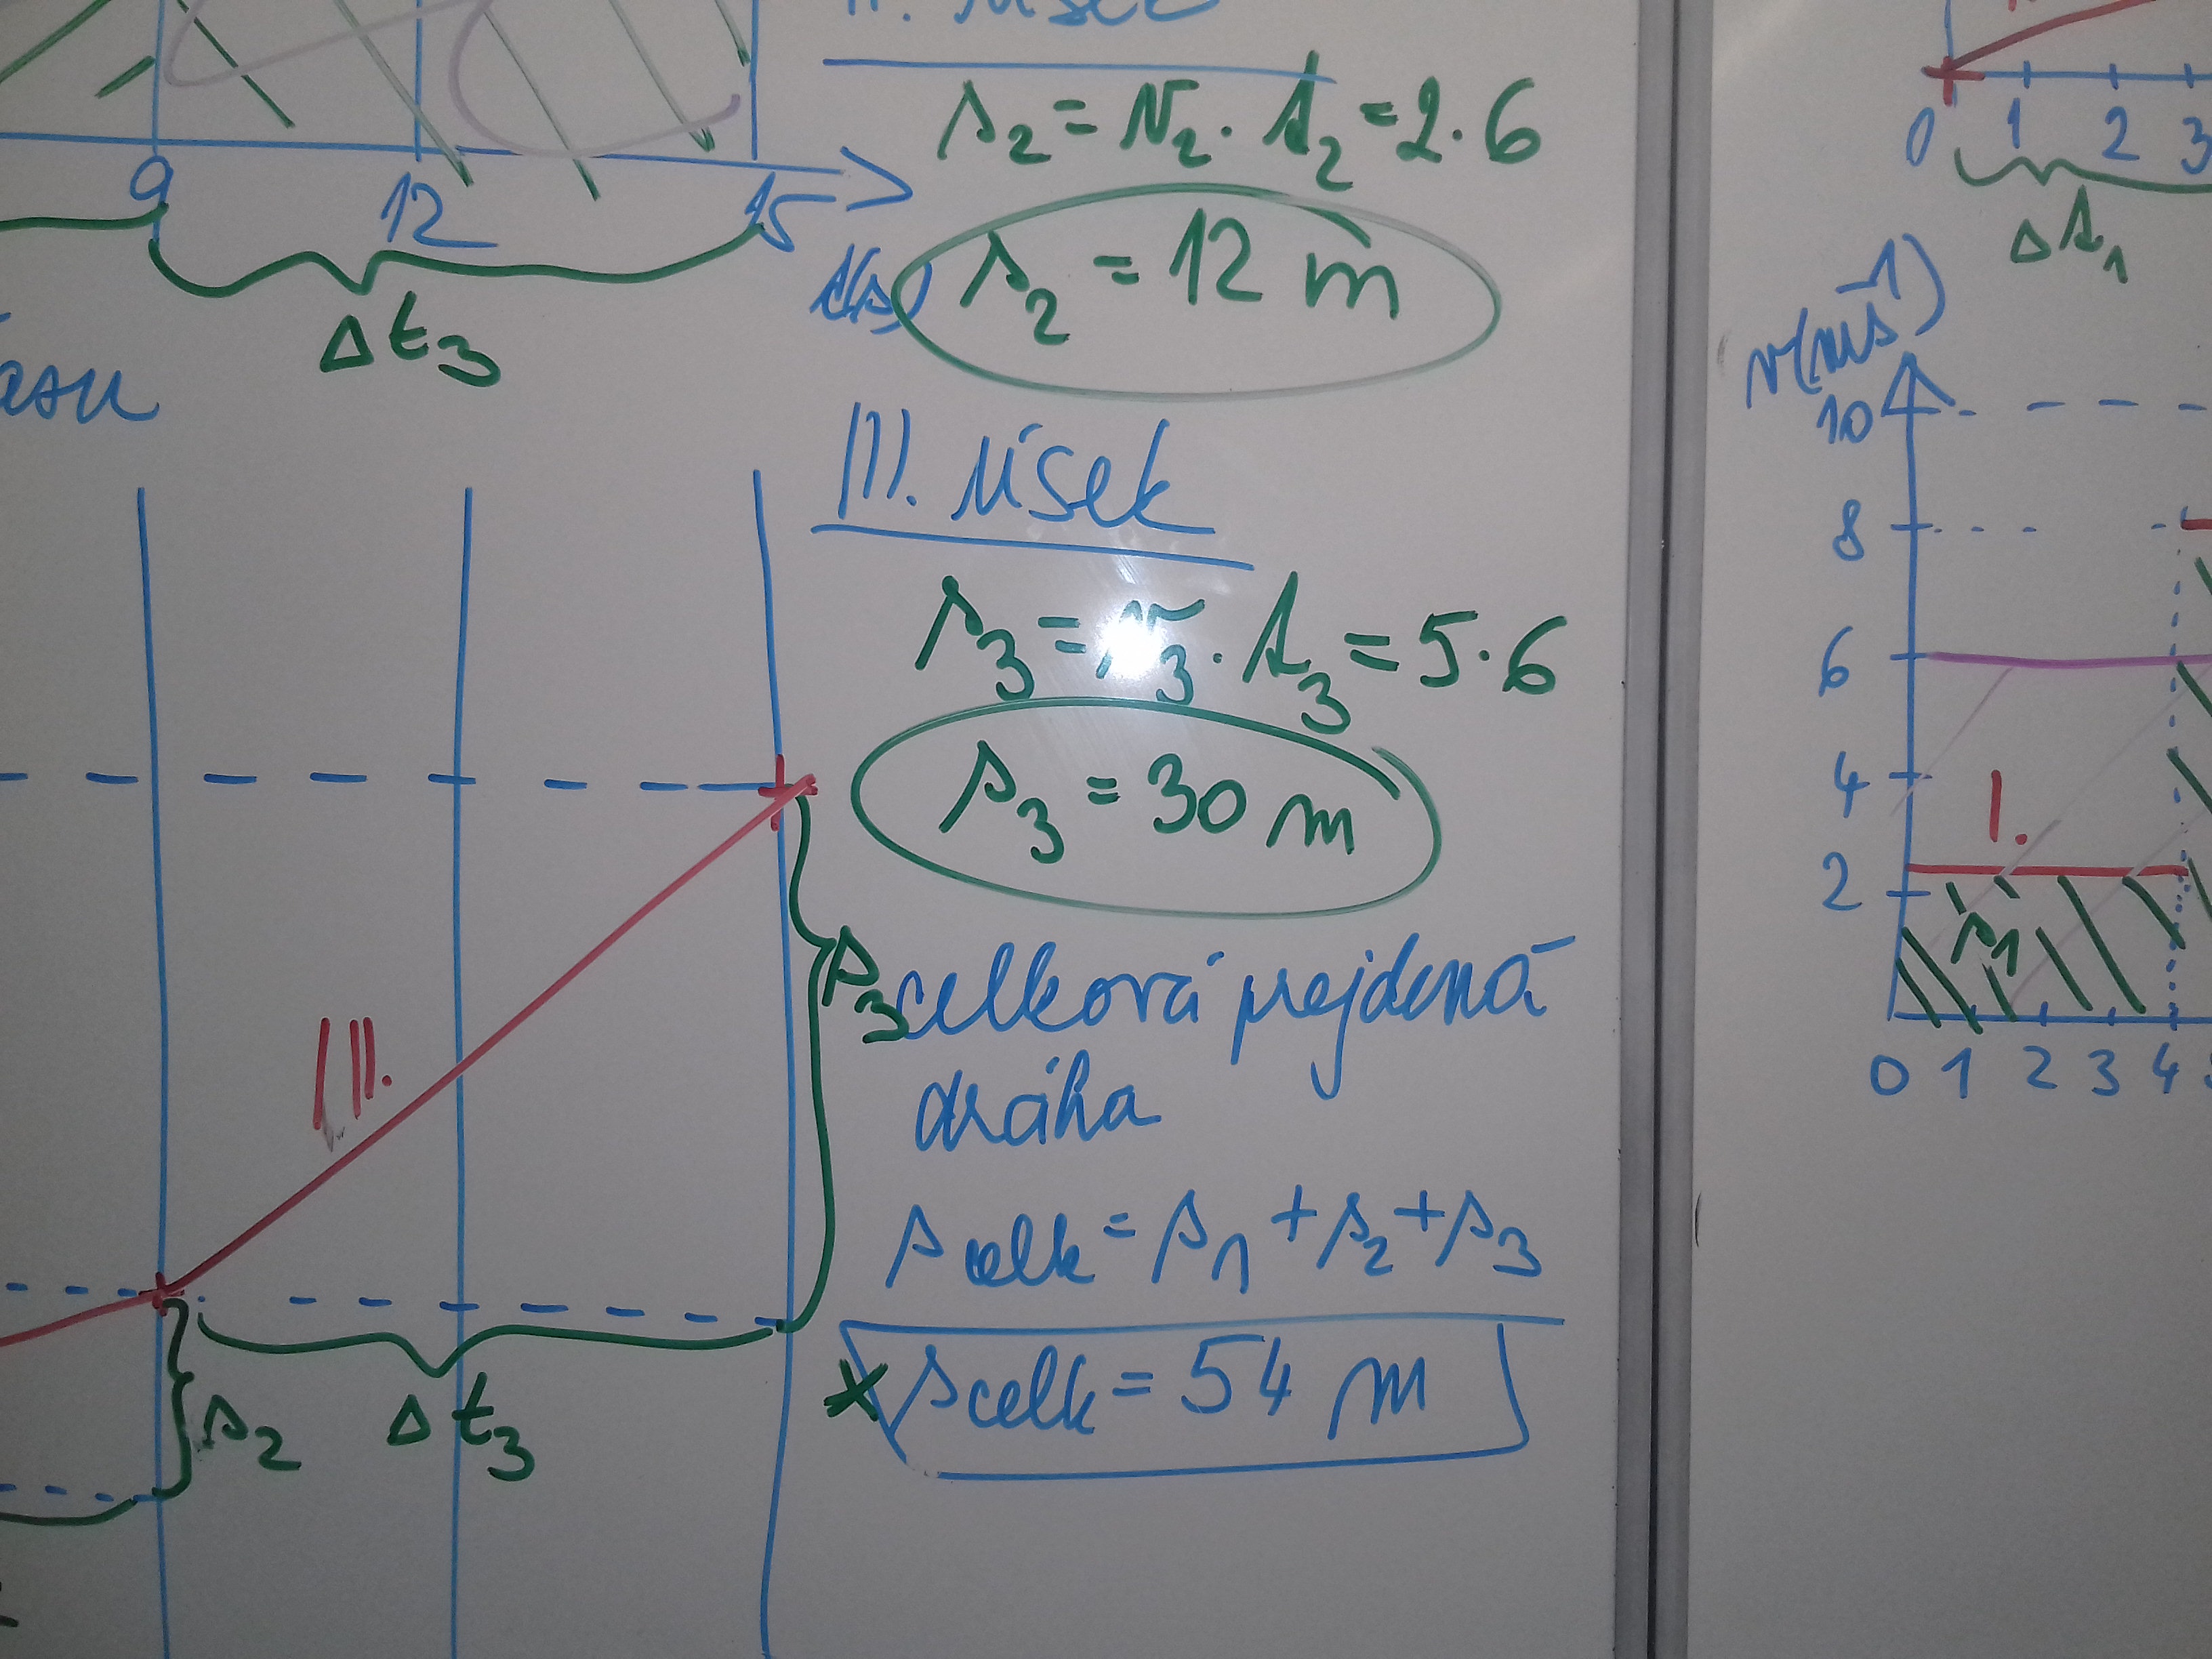 II. úsek
s₂ = v₂ · t₂ = 2 · 6
9 12 15
t(s)
s₂ = 12 m
Δt₃
III. úsek
s₃ = v₃ · t₃ = 5 · 6
s₃ = 30 m
s₃
celková prejdená
dráha
III.
s celk = s₁ + s₂ + s₃
s celk = 54 m
s₂
Δt₃
0 1 2 3
Δt₁
v(ms⁻¹)
10
8
6
4
I.
2
s₁
0 1 2 3 4